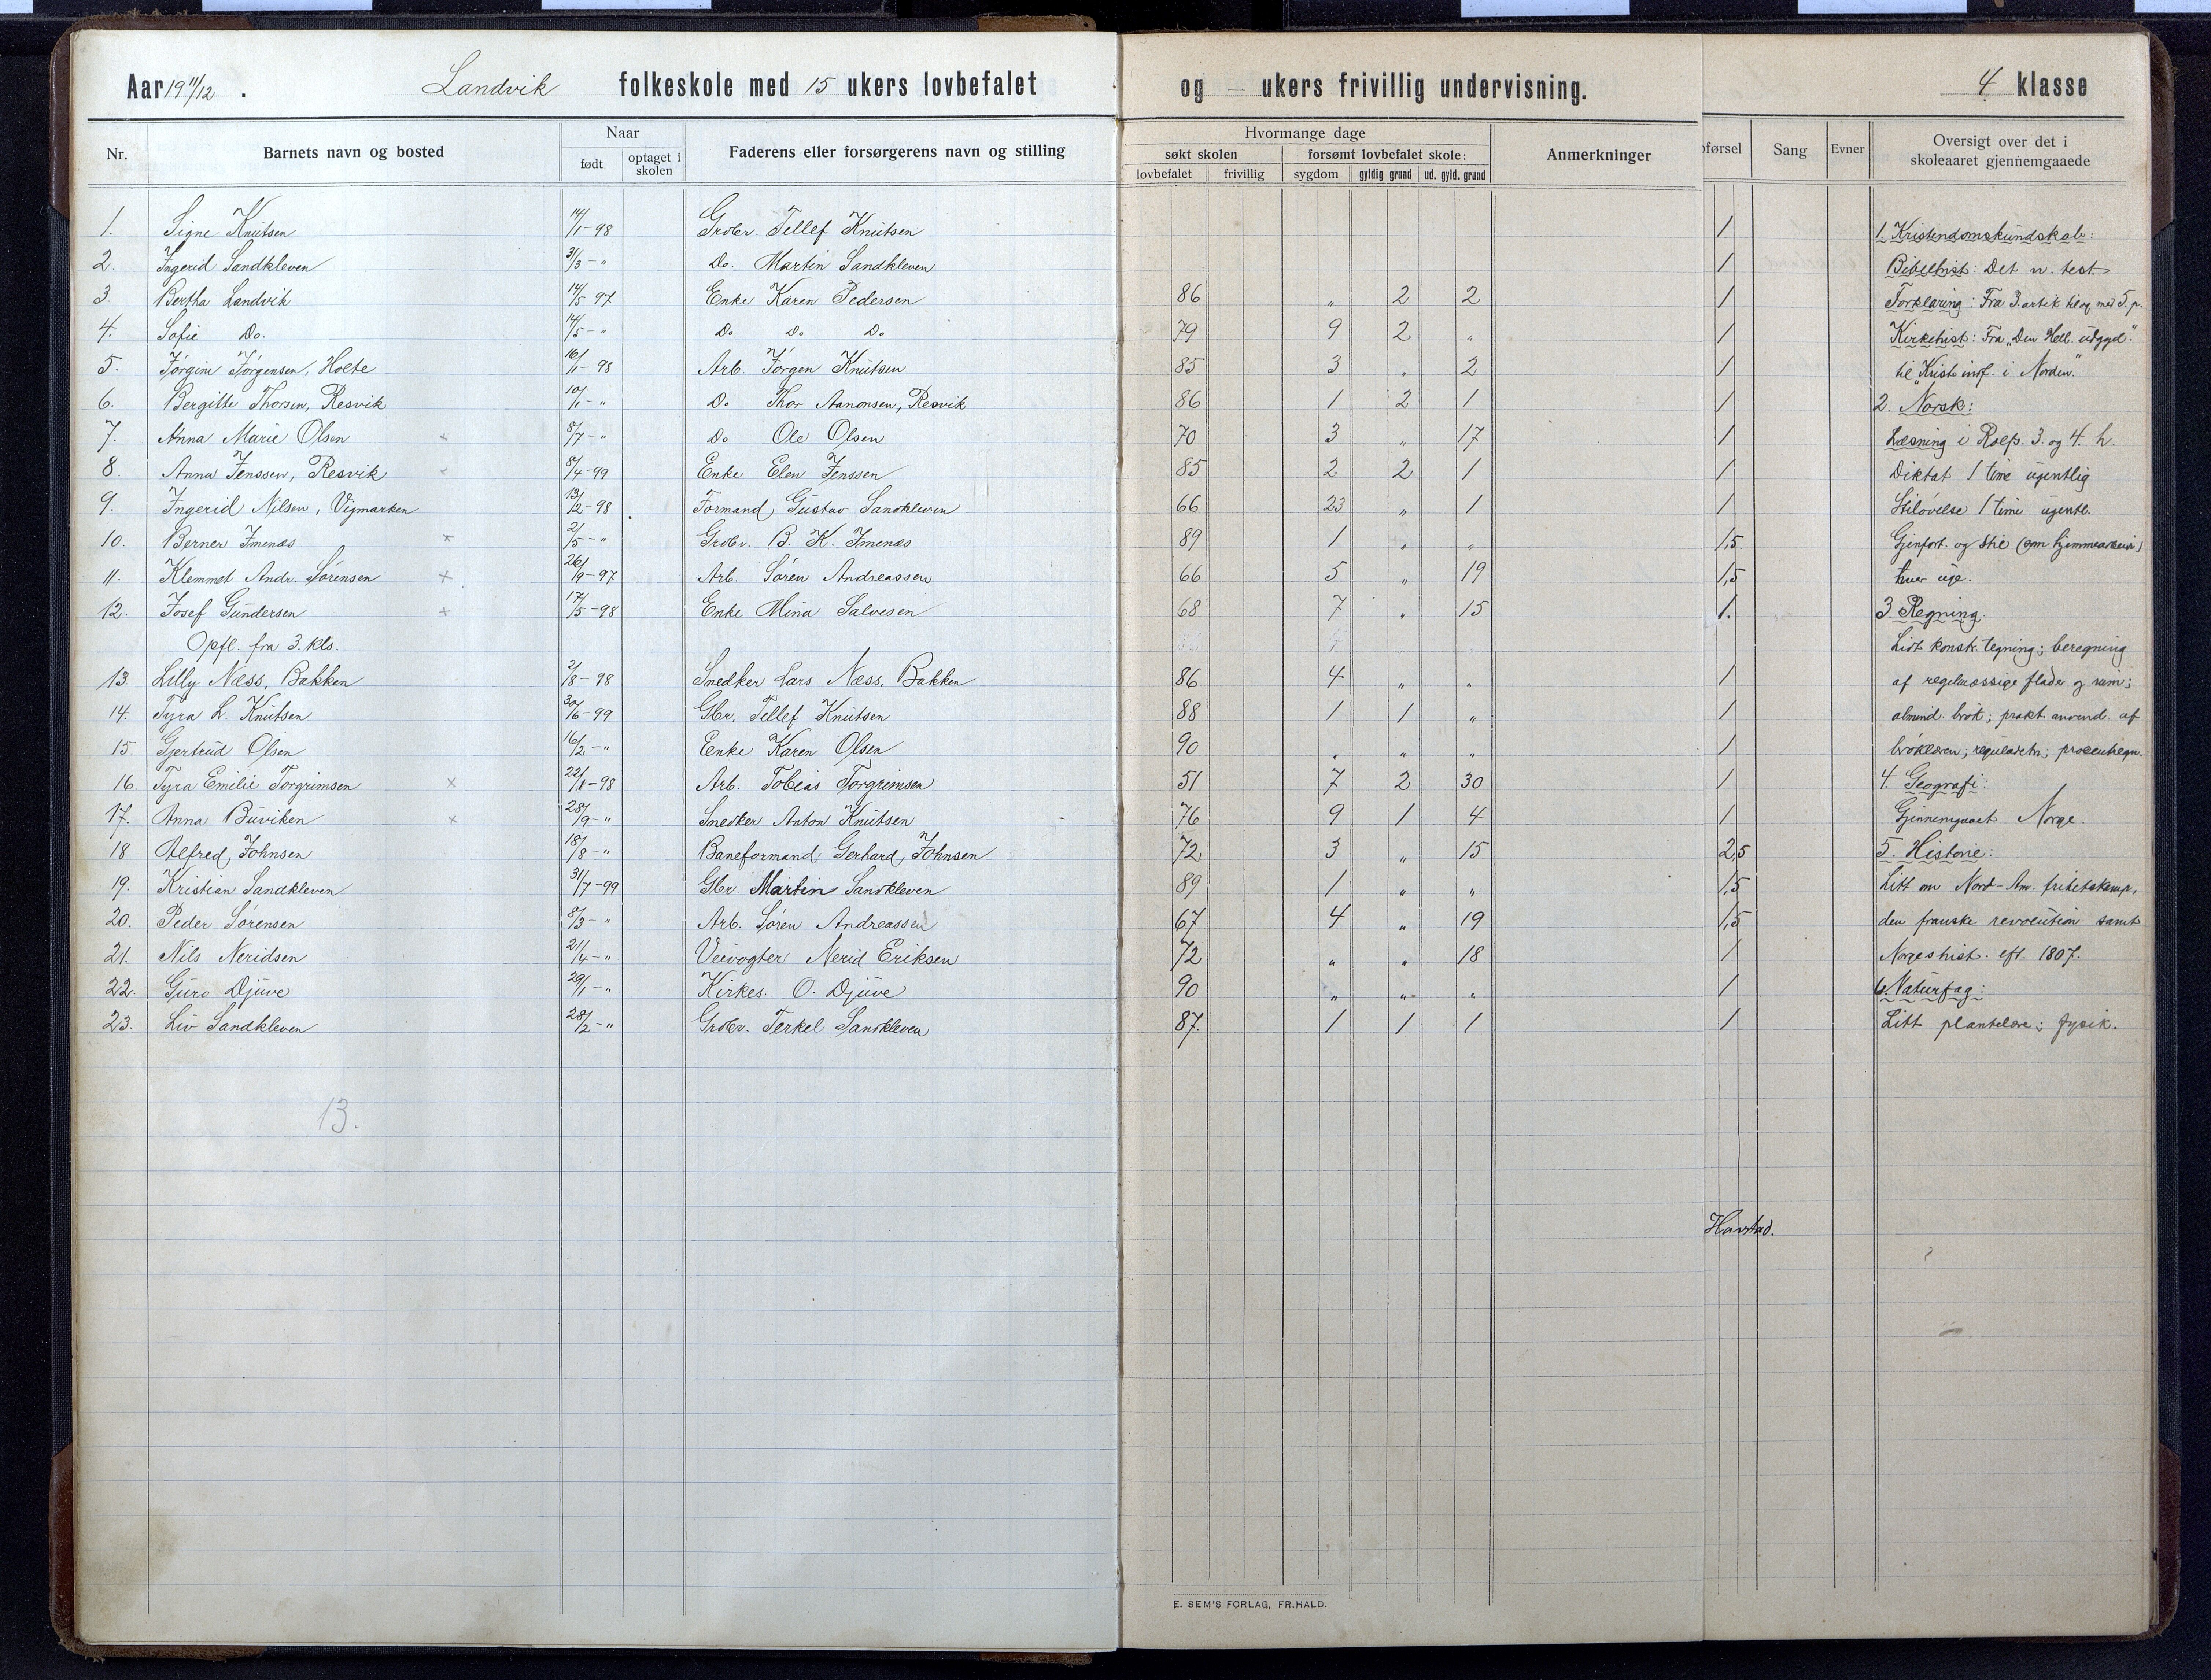 Aar 1911/12 . Landvik folkeskole med 15 ukers lovbefalet og — ukers frivillig undervisning. 4 klasse
Nr. Barnets navn og bosted Naar født optaget i skolen Faderens eller forsørgerens navn og stilling Hvormange dage søkt skolen lovbefalet frivillig forsømt lovbefalet skole: sygdom gyldig grund ud. gyld. grund Anmerkninger førsel Sang Evner Oversigt over det i skoleaaret gjennemgaaede
1. Signe Knutsen 14/1-98 Grdbr. Tellef Knutsen 1 1. Kristendomskundskab:
2. Ingerid Sandkleven 31/3-" Do. Martin Sandkleven 1 Bibelhist: Det n. test
3. Bertha Landvik 14/5 97 Enke Karen Pedersen 86 " 2 2 1 Forklaring: Fra 3. artik til og med 5. p.
4. Sofie Do. 14/5-" Do Do Do 79 9 2 " 1 Kirkehist: Fra „Den Hell. udgyd."
5. Jørgine Jørgensen, Holte 16/1-98 Arb. Jørgen Knutsen 85 3 " 2 1 til „Krist. innf. i Norden."
6. Bergitte Thorsen, Resvik 10/1-" Do Thor Aanonsen, Resvik 86 1 2 1 1 2. Norsk:
7. Anna Marie Olsen × 8/7-" Do Ole Olsen 70 3 " 17 1 Læsning i Rolfs. 3. og 4. h.
8. Anna Jenssen, Resvik 8/4-99 Enke Elen Jenssen 85 2 2 1 1 Diktat 1 time ugentlig
9. Ingerid Nilsen, Vigmarken 13/12-98 Formand Gustav Sandkleven 66 23 " 1 1 Stiløvelse 1 time ugentl.
10. Berner Imenæs × 2/5-" Grdbr. B. K. Imenæs 89 1 " " 1,5 Gjenfort. og stil (som hjemmearbeid)
11. Klemmet Andr. Sørensen × 26/9-97 Arb. Søren Andreassen 66 5 " 19 1,5 hver uge.
12. Josef Gundersen × 17/5-98 Enke Mina Salvesen 68 7 " 15 1. 3. Regning.
Opfl. fra 3. kls. Lidt konsk. tegning; beregning
13. Lilly Næss, Bakken 2/8-98 Snedker Lars Næss, Bakken 86 4 " " 1 af regelmæssige flader og rum;
14. Tyra L. Knutsen 30/6-99 Gbr. Tellef Knutsen 88 1 1 " 1 almind. brøk; prakt. anvend. af
15. Gjertrud Olsen 16/2-" Enke Karen Olsen 90 " " " 1 brøklæren; reguladetri; procentregn.
16. Tyra Emilie Torgrimsen × 22/11-98 Arb. Tobias Torgrimsen 51 7 2 30 1 4. Geografi:
17. Anna Buviken × 28/9-" Snedker Anton Knutsen 76 9 1 4 1 Gjennemgaaet Norge.
18 Alfred Johnsen 18/8-" Baneformand Gerhard Johnsen 72 3 " 15 2,5 5. Historie:
19. Kristian Sandkleven 31/7-99 Gbr Martin Sandkleven 89 1 " " 1,5 Litt om Nord-Am. frihetskamp,
20. Peder Sørensen 8/3-" Arb. Søren Andreassen 67 4 " 19 1,5 den franske revolution samt
21. Nils Neridsen 21/4-" Veivogter Nerid Eriksen 72 " " 18 1 Norgeshist. eft. 1807.
22. Guro Djuve 29/1-" Kirkes. O. Djuve 90 " " " 1 6. Naturfag:
23. Liv Sandkleven 28/2-" Grdbr. Terkel Sandkleven 87. 1 1 1 1 Litt plantelære; fysik.
13.
Havstad.
E. SEM'S FORLAG, FR.HALD.